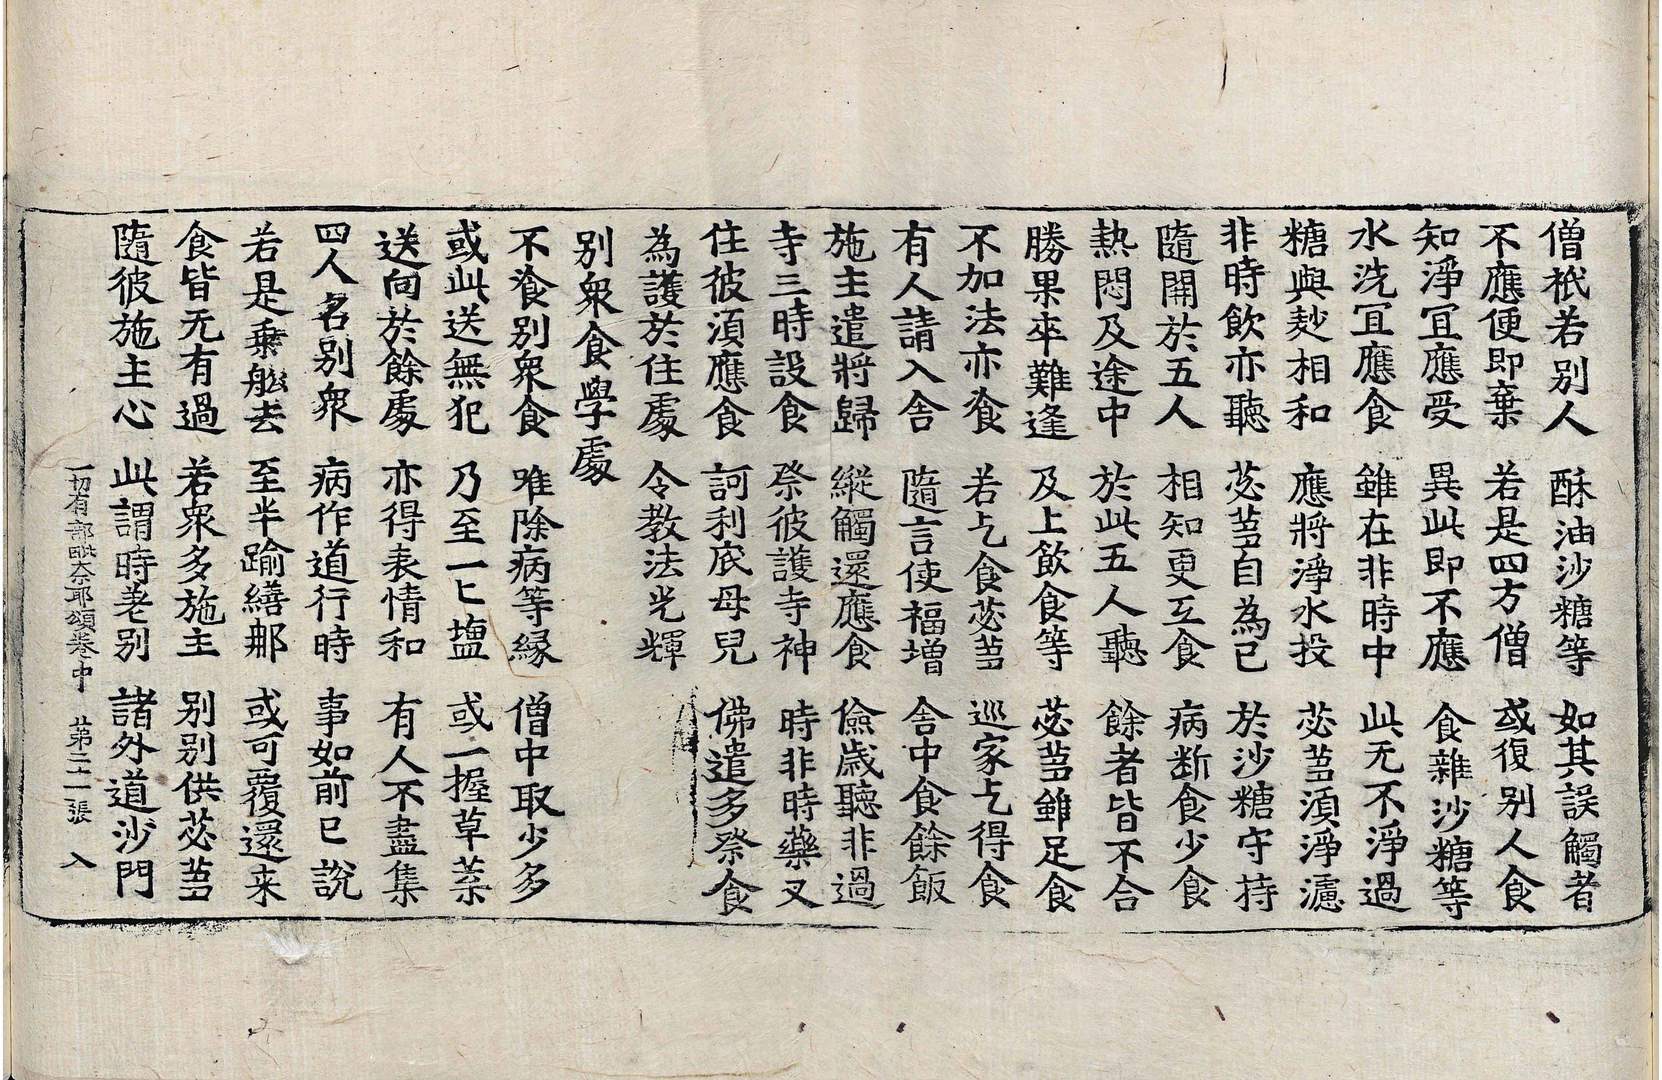 僧祇若別人　酥油沙糖等　如其誤觸者
不應便即棄　若是四方僧　或復別人食
知淨冝應受　異此即不應　食雜沙糖等
水洗冝應食　雖在非時中　此无不淨過
糖與麨相和　應將淨水投　苾芻湏淨濾
非時飲亦聽　苾芻自為已　於沙糖守持
隨開於五人　相知更互食　病断食少食
熱悶及途中　於此五人聽　餘者皆不合
勝果卒難逢　及上飲食等　苾芻雖足食
不加法亦飡　若乞食苾芻　巡家乞得食
有人請入舍　隨言使福增　舍中食餘飯
施主遣將歸　縱觸還應食　儉歳聽非過
寺三時設食　祭彼護寺神　時非時藥叉
住彼湏應食　訶利底母兒　佛遣多祭食
為護於住處　令教法光輝
別衆食學處
不飡別衆食　唯除病等縁　僧中取少多
或此送無犯　乃至一匕塩　或一握草菜
送向於餘處　亦得表情和　有人不盡集
四人名別衆　病作道行時　事如前已說
若是乗舩去　至半踰繕那　或可覆還来
食皆无有過　若衆多施主　別別供苾芻
隨彼施主心　此謂時差別　諸外道沙門
一切有部毗奈耶頌卷中　第二十一張　入